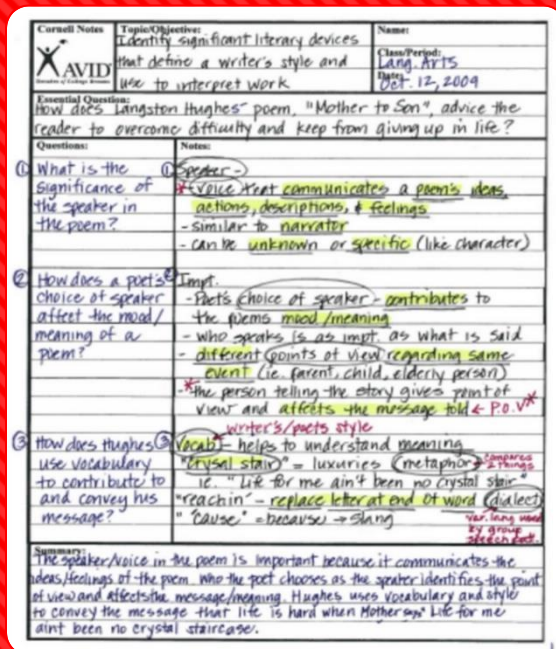 Cornell Notes
AVID
Topic/Objective:
Identify significant literary devices
that define a writer's style and
use to interpret work
Name:
Class/Period:
Lang. Arts
Date:
Oct. 12, 2009
Essential Question:
How does Langston Hughes' poem, "Mother to Son", advice the
reader to overcome difficulty and keep from giving up in life?
Questions:
① What is the
significance of
the speaker in
the poem?
② How does a poet's
choice of speaker
affect the mood/
meaning of a
poem?
③ How does Hughes
use vocabulary
to contribute to
and convey his
message?
Notes:
① Speaker -
* voice that communicates a poem's ideas,
actions, descriptions, & feelings
- similar to narrator
- can be unknown or specific (like character)
② Impt.
- Poet's choice of speaker - contributes to
the poems mood/meaning
- who speaks is as impt. as what is said
- different points of view regarding same
event (ie. parent, child, elderly person)
-* the person telling the story gives point of
view and affects the message told ← P.O.V*
writer's/poets style
③ Vocab - helps to understand meaning
"crysal stair" = luxuries (metaphor) → compares
2 things
ie. "Life for me ain't been no crystal stair"
"reachin" - replace letter at end of word (dialect)
" 'cause" = because → slang
var. lang used
by group
speech
Summary:
The speaker/voice in the poem is important because it communicates the
ideas/feelings of the poem. Who the poet chooses as the speaker identifies the point
of view and affects the message/meaning. Hughes uses vocabulary and style
to convey the message that life is hard when Mother says "Life for me
aint been no crystal staircase.